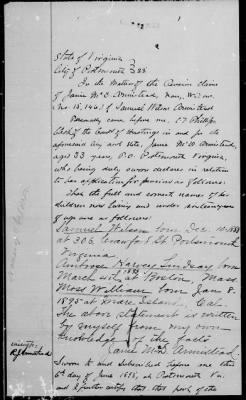 State of Virginia
City of Portsmouth } SS
In the matter of the Pension claim
of Janie Mc D. Armistead, Navy, Widow,
No. 15,146, of Samuel Wilson Armistead
Personally came before me,
Clerk of the Court of Hustings in and for the
aforesaid City and State, Janie Mc D. Armistead,
aged 33 years, P.O. Portsmouth Virginia,
who being duly sworn declares in relation
to her application for pension as follows:
That the full and correct names of his
children now living and under sixteen years
of age are as follows:
Samuel Wilson born Dec 10th
at 306 Crawford St Portsmouth
Virginia
Ambrose Harvey Lindsay born
March Boston, Mass
Moss William born Jan 8
1895 at Mare Island, Cal.
The above statement is written
by myself from my own
knowledge of the facts
Janie McD. Armistead.
Sworn to and Subscribed before me this
6th day of June 1898, at Portsmouth Va.
and I further certify that that part of the